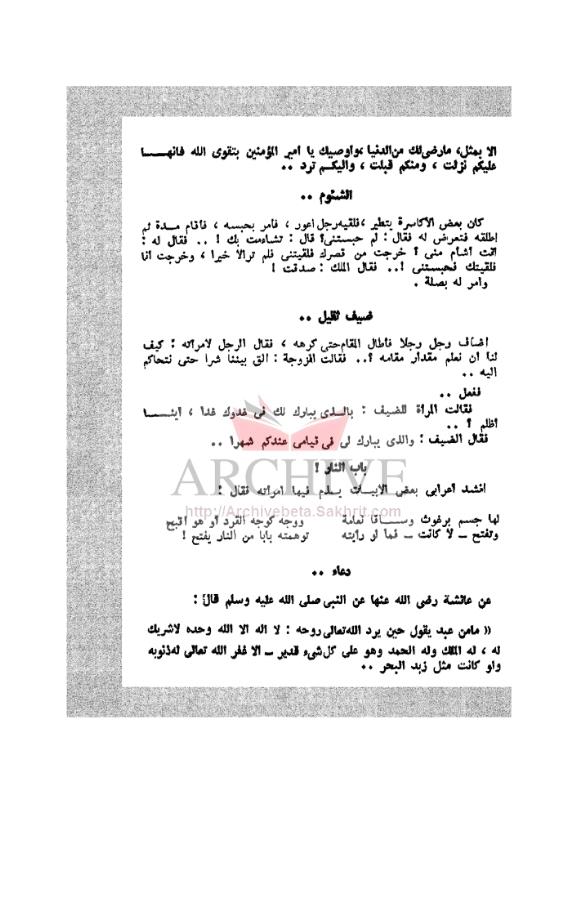 الا بمثل، مارضى لك من الدنيا ،واوصيك يا امير المؤمنين بتقوى الله فانهـــا
عليكم نزلت ، ومنكم قبلت ، واليكم ترد ..
الشئوم ..
كان بعض الأكاسرة يتطير ،فلقيه رجل اعور ، فامر بحبسه ، فاقام مدة ثم
اطلقه فتعرض له فقال : لم حبستنى؟ قال : تشاءمت بك ! .. فقال له :
انت أشأم منى ؟ خرجت من قصرك فلقيتنى فلم تر الا خيرا ، وخرجت انا
فلقيتك فحبستنى !.. فقال الملك : صدقت !
وامر له بصلة .
ضيف ثقيل ..
اضاف رجل رجلا فاطال المقام حتى كرهه ، فقال الرجل لامراته : كيف
لنا ان نعلم مقدار مقامه ؟.. فقالت الزوجة : الق بيننا شرا حتى نتحاكم
اليه ..
ففعل ..
فقالت المرأة للضيف : بالــذى يبارك لك فى غدوك غدا ، اينـــا
اظلم ؟ ..
فقال الضيف : والذى يبارك لى فى قيامى عندكم شهرا ..
باب النار !
ARCHIVE
انشد أعرابى بعض الابيــات يــذم فيها امراته فقال :
http://Archivebeta.Sakhrit.com
لها جسم برغوث وســـاقا نعامة ووجه كوجه القرد او هو اقبح
وتفتح ــ لا كانت ــ فما لو رايته توهمته بابا من النار يفتح !
دعاء ..
عن عائشة رضى الله عنها عن النبى صلى الله عليه وسلم قال :
« مامن عبد يقول حين يرد الله تعالى روحه : لا اله الا الله وحده لاشريك
له ، له الملك وله الحمد وهو على كل شىء قدير ــ الا غفر الله تعالى له ذنوبه
ولو كانت مثل زبد البحر ..